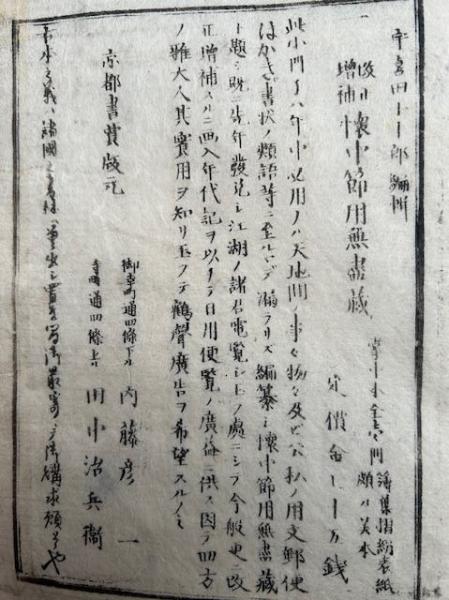 四十郎編輯
改正増補 懐中節用無盡蔵
掌中本全壱冊 薄葉摺紛表紙 頗ル美本
定價金二十五銭
此小冊子ハ年中必用ノハ天地間ノ事々物々及ビ公私ノ用文郵便
はかき書状ノ類語等ニ至ルマデ漏ラサズ編纂シ懐中節用無盡蔵
ト題シ既ニ先年發兌シ江湖ノ諸君電覧シ玉フ處ニシテ今般更ニ改
正増補スルニ両入年代記ヲ以テシ日用便覧ノ廣益ニ供ス因テ四方
ノ雅大人其實用ヲ知リ玉フテ鶴聲廣告ヲ希望スルノミ
京都書賈版元
御幸町通四條下ル 内藤彦一
寺町通四條上ル 田中治兵衞
右本之義ハ諸國之書林ヘ差出シ置候間御最寄ニテ御購求願上候也